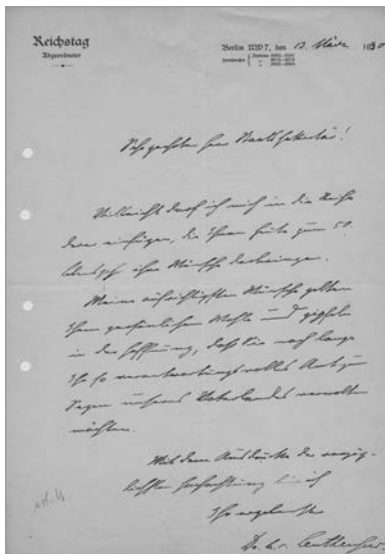 Reichstag
Abgeordneter
Berlin NW 7, den 13. März 1930
Sehr geehrter Herr Staatssekretär!
Vielleicht darf ich mich in die Reihe
derer einfügen, die Ihnen heute zum 50.
ihre Wünsche darbringen.
Meine aufrichtigsten Wünsche gelten
Ihrem persönlichen Wohle und gipfeln
in der Hoffnung, daß Sie noch lange
Ihr so verantwortungsvolles Amt zum
Segen unseres Vaterlandes verwalten
möchten.
Mit dem Ausdrucke der vorzüg-
lichsten Hochachtung bin ich
Ihr ergebenster
Dr.